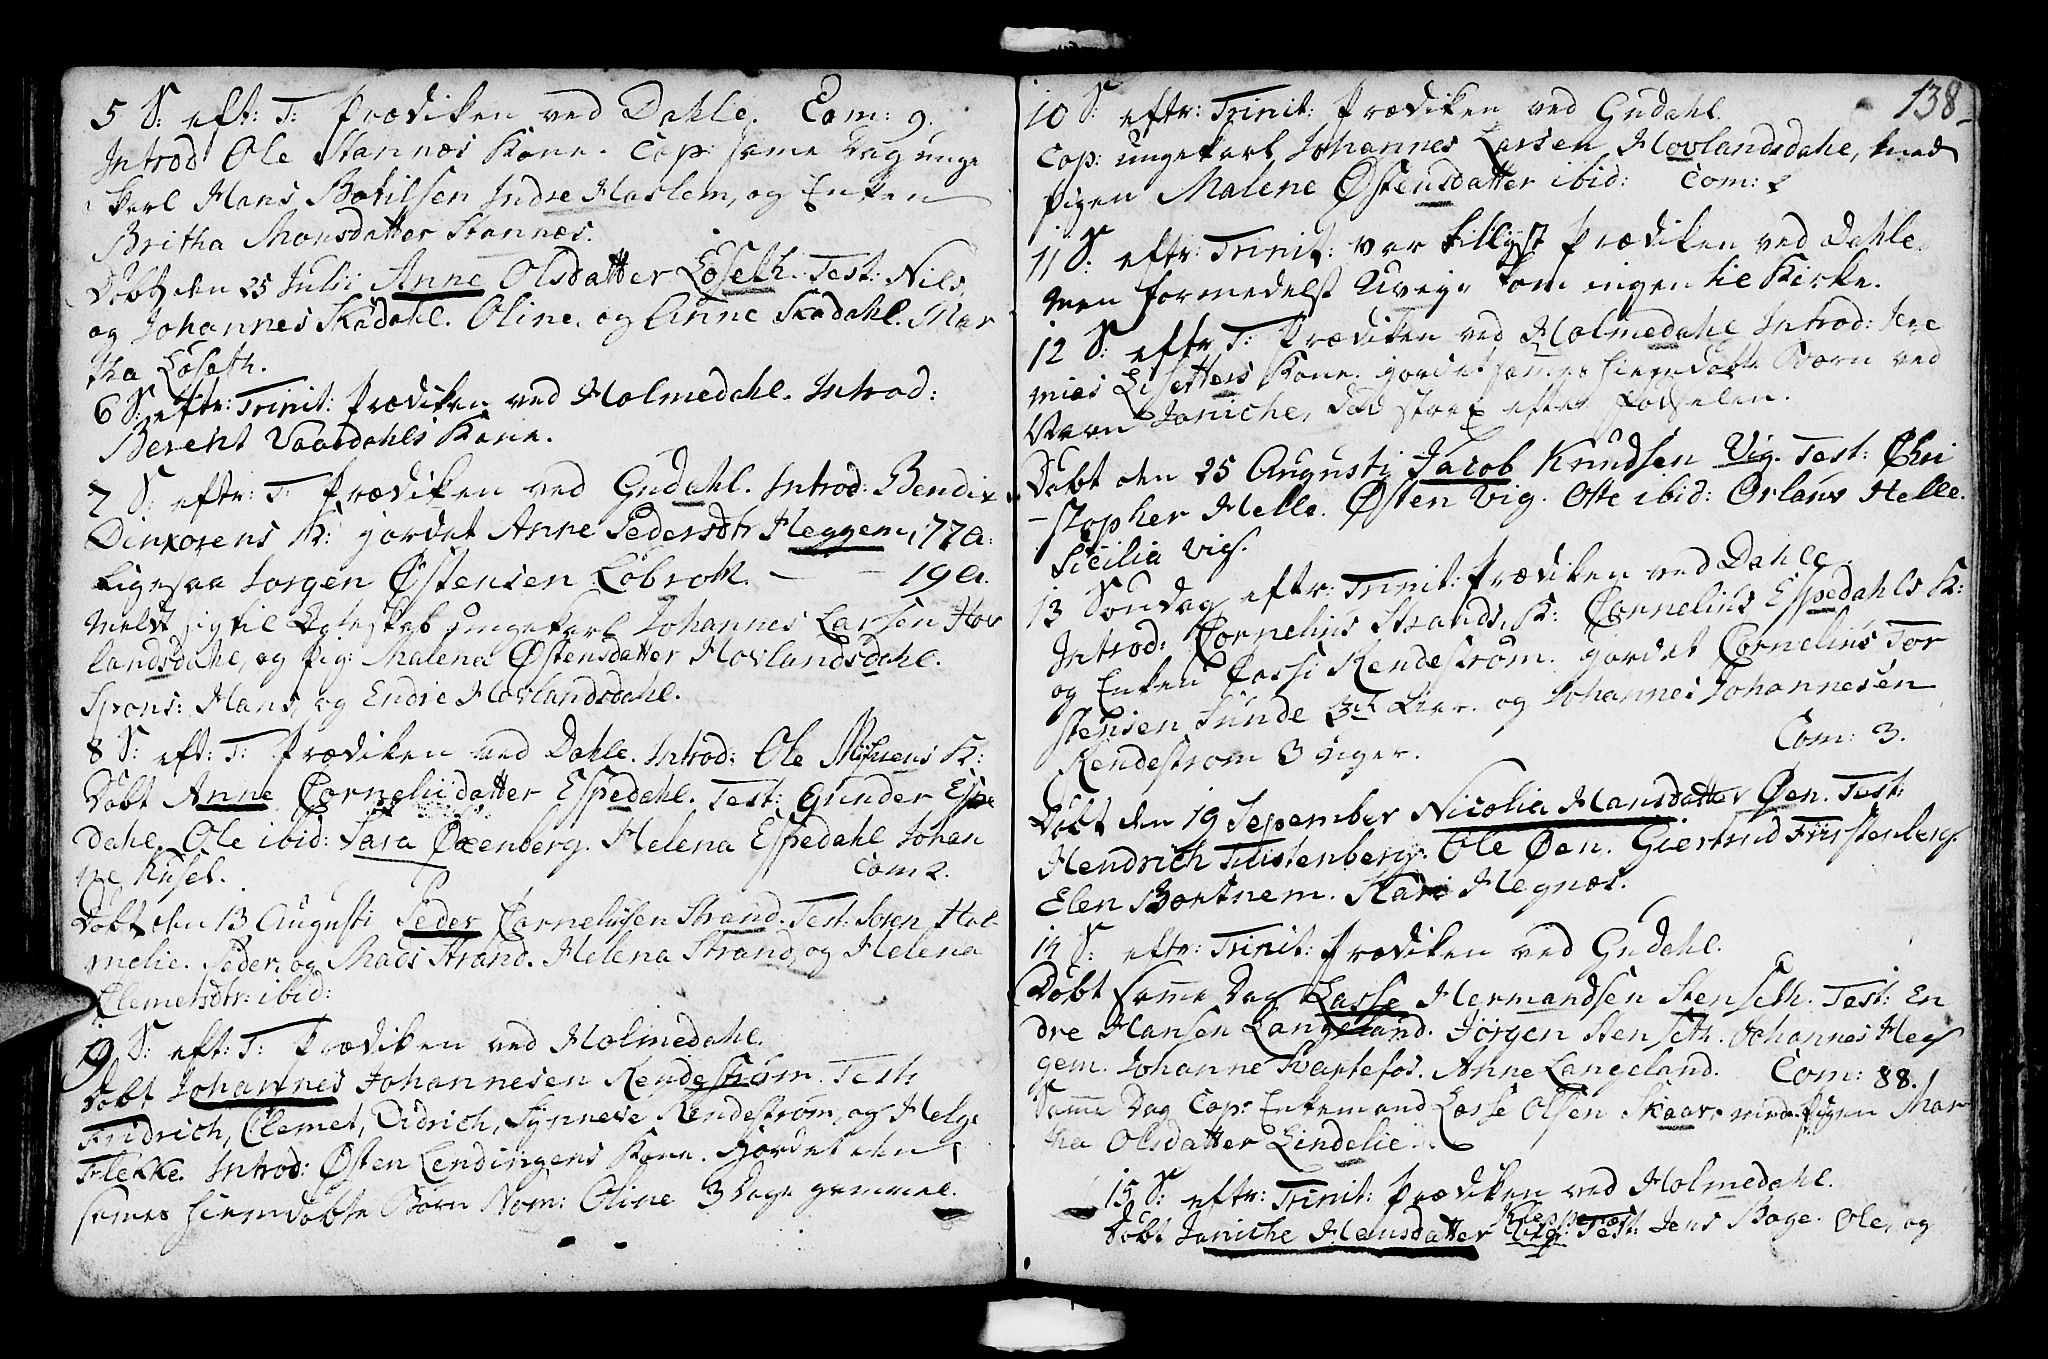 5 S: eft: T: Prædiken ved Dahle. Com: 9.
Introd Ole Stannæs Kone. Cop: same Dag unge
Karl Hans Botilsen Indre Haslem, og Enken
Britha Monsdatter Stannæs.
Døbt den 25 Julii Anne Olsdatter Løseth. Test: Nils,
og Johannes Skadahl. Oline, og Anne Skadahl. Mar
tha Løseth.
6 S: eftr: Trinit: Prædiken ved Holmedahl. Introd:
Berent Vaardahls Kone.
7 S: eftr: T: Prædiken ved Gudahl. Introd: Bendix
K: jordet Anne Pedersdtr Heggem, 77 a:
Ligesaa Jørgen Østensen Løbrok. — 19 a.
Meldt sig til Egteskab ungekarl Johannes Larsen Hov
landsdahl, og Pig: Malena Østensdatter Hovlandsdahl.
Spons: Hans, og Endre Hovlandsdahl.
8 S: eft: T: Prædiken ved Dahle. Introd: Ole K:
Døbt Anne Cornelii datter Espedahl. Test: Gunder Espe
dahl. Ole ibid: Sara Øxenberg. Helena Espedahl Johan
ne Kusel. Com 2.
Døbt den 13 Augusti Peder Corneliisen Strand. Test: Søren Hol
melie. Peder, og Mads Strand. Helena Strand, og Helena
Clemetsdtr: ibid:
9 S: eft: T: Prædiken ved Holmedahl.
Døbt Johannes Johannesen Rendestrøm. Test:
Fridrich, Clemet, Didrich, Synneve Rendestrøm, og Helge
Flekke. Introd: Østen Lendingens Kone. Jordet den
sames hiemdøbte Børn Nom: Oline 3 Dage gammel.
138
10 S: eftr: Trinit: Prædiken ved Gudahl.
Cop: ungekarl Johannes Larsen Hovlandsdahl, med
Pigen Malene Østensdatter ibid: Com:
11 S: eftr: Trinit: var tillyst Prædiken ved Dahle,
men formedelst Uveyr kom ingen til Kirke.
12 S: eftr T: Prædiken ved Holmedahl Introd: Jere
mias Kone. jordet sammes hiemdøbte Barn ved
Navn Janiche, død strax efter fødselen.
Døbt den 25 Augusti Jacob Knudsen Vig. Test: Chri
stopher Helle. Østen Vig. Otte ibid: Ørlans Helle.
Sicilia Vig.
13 Søndag eftr: Trinit: Prædiken ved Dahle.
Introd: Cornelius Strands, K: Cornelius Espedahls K:
og Enken Rendestrøm. jordet Cornelius Tor
stensen Sunde og Johannes Johannesen
Rendestrøm 3 uger. Com: 3.
Døbt den 19 September Nicolia Hansdatter Øen. Test:
Hendrich Fürstenberg. Ole Øen. Giertrud Fürstenberg.
Elen Bortnem. Kari Hegnæs.
14 S: eftr: Trinit: Prædiken ved Gudahl.
Døbt samme Dag Lasse Hermandsen Stenseth. Test: En
dre Hansen Langeland. Jørgen Stenseth. Johannes Heg
gem. Johanne Svartefos. Anne Langeland. Com: 88.
Samme Dag Cop: Enkemand Lasse Olsen Skaar, med Pigen Mar
tha Olsdatter Lindelie.
15 S: eftr: Trinit: Prædiken ved Holmedahl.
Døbt Janiche Hansdatter Vig. Test: Jens Boge. Ole, og